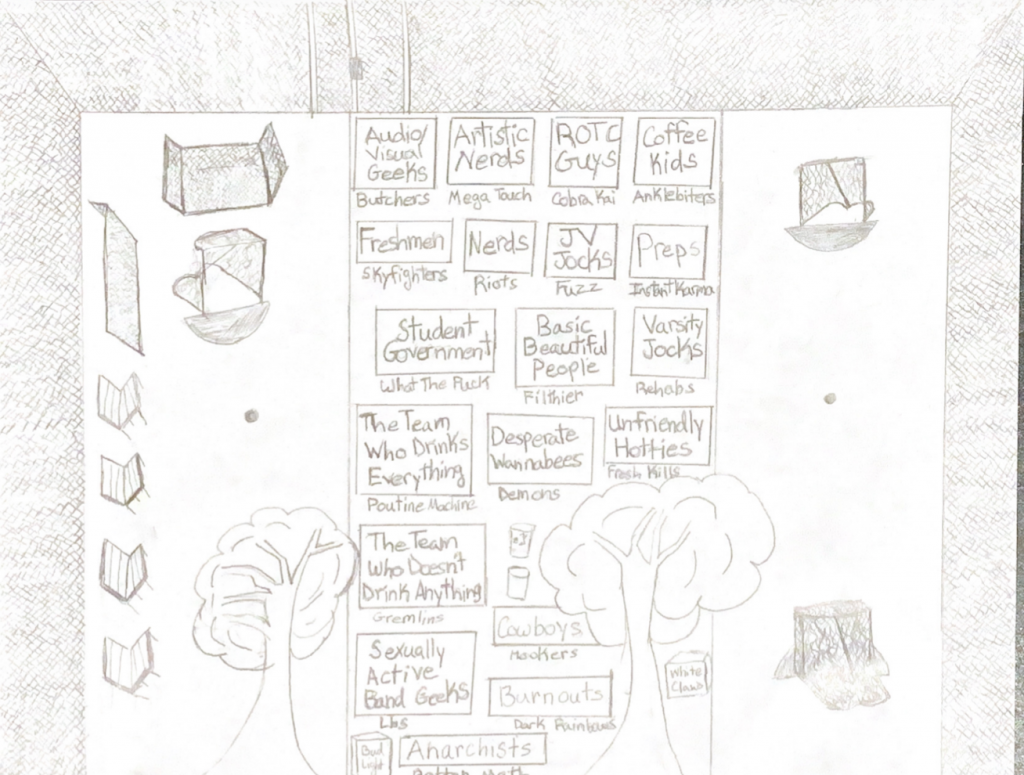 Audio/
Visual
Geeks
Butchers
Artistic
Nerds
Mega Touch
ROTC
Guys
Cobra Kai
Coffee
Kids
Anklebiters
Freshmen
Skyfighters
Nerds
Riots
JV
Jocks
Fuzz
Preps
Instant Karma
Student
Government
What The Puck
Basic
Beautiful
People
Filthier
Varsity
Jocks
Rehabs
The Team
Who Drinks
Everything
Poutine Machine
Desperate
Wannabees
Demons
Unfriendly
Hotties
Fresh Kills
The Team
Who Doesn't
Drink Anything
Gremlins
Cowboys
Mookers
Sexually
Active
Band Geeks
Lbs
Burnouts
Dark Rainbows
White
Claw
Bud
Light
Anarchists